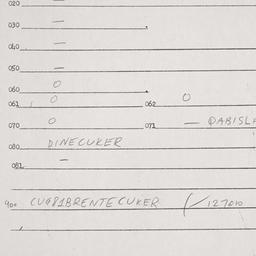 020 —
030 —
040 —
050 —
060 O
061 O 062 O
070 O 071 — QABISLA
080 DINECUKER
081 —
900 CUG81BRENTECUKER (/127010